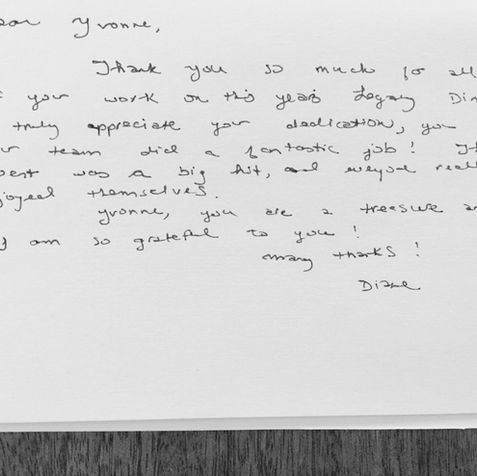 ear Yvonne,
Thank you so much for all
f your work on this years Legacy Din
truly appreciate your dedication, you
ur team did a fantastic job! Th
vent was a big hit, and everyone reall
joyed themselves.
Yvonne, you are a treasure an
I am so grateful to you!
Many thanks!
Diane